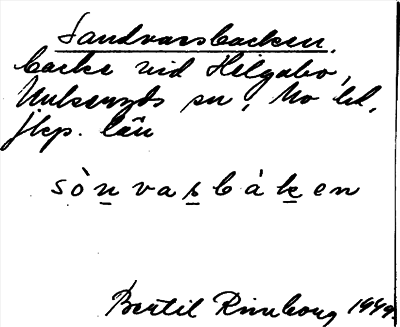 Sandvarsbacken.
backe vid Helgabo,
sn, Mo hd,
Jkp. län
sònvasbàken
Bertil Rimborg 1979